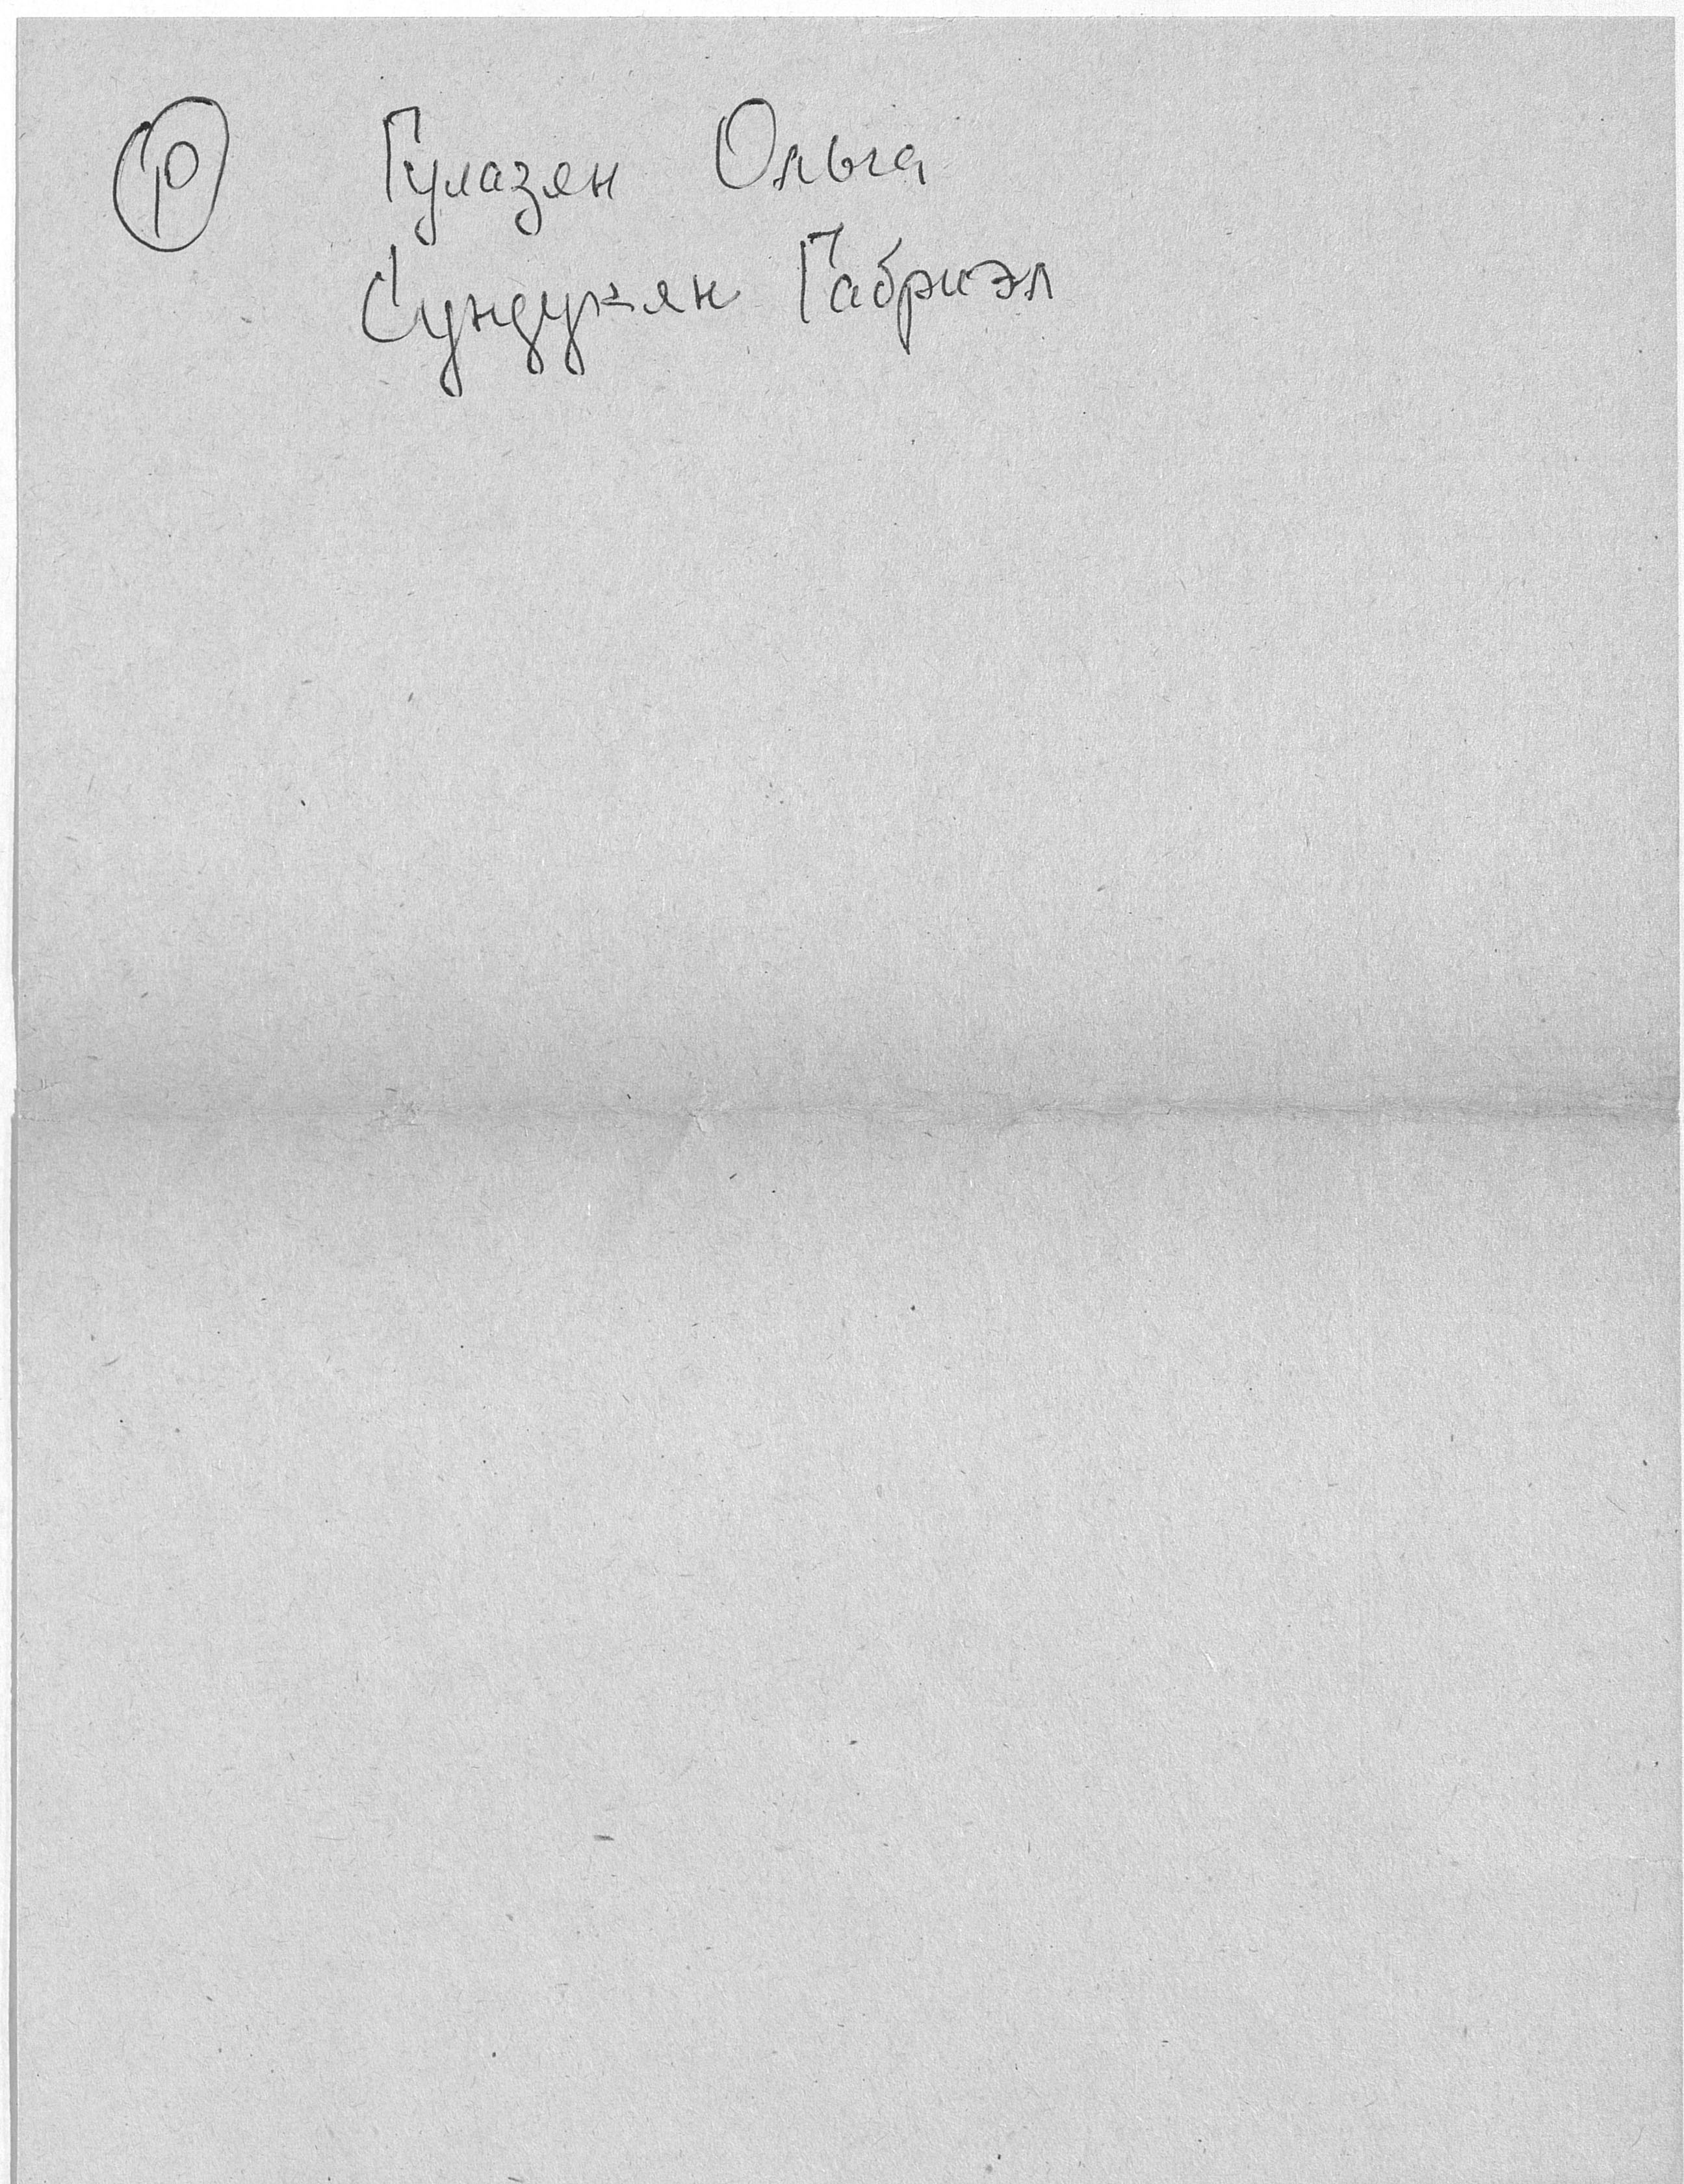 10 Гулазян Ольга
Сундукян Габриэл